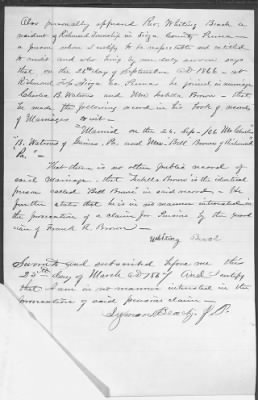 Also personally appeared Rev. Whiting Beach a
resident of Richmond Township in Tioga County Penna —
a person whom I certify to be respectable and entitled
to credit and who being by me duly sworn says
that on the 26th day of September A.D. 1866 — at
Richmond Twp Tioga Co. Penna he joined in marriage
Charles B. Watrous and Mrs Isabella Brown — that
he made the following record in his Book of records
of Marriages to wit —
"Married on the 26. Sep. /66 Mr Charles
"B. Watrous of Gaines, Pa. and Mrs. Bell Brown of Richmond
Pa." —
That there is no other public record of
said marriage — that Isabella Brown is the identical
person called "Bell Brown" in said record — He
further states that he is in no manner interested in
the prosecution of a claim for Pension by the guard
ian of Frank H. Brown —
Whiting Beach
Sworn to and subscribed before me this
25th day of March A.D. 1867 And I certify
that I am in no manner interested in the
prosecution of said pension claim —
Lyman Beach J.P.